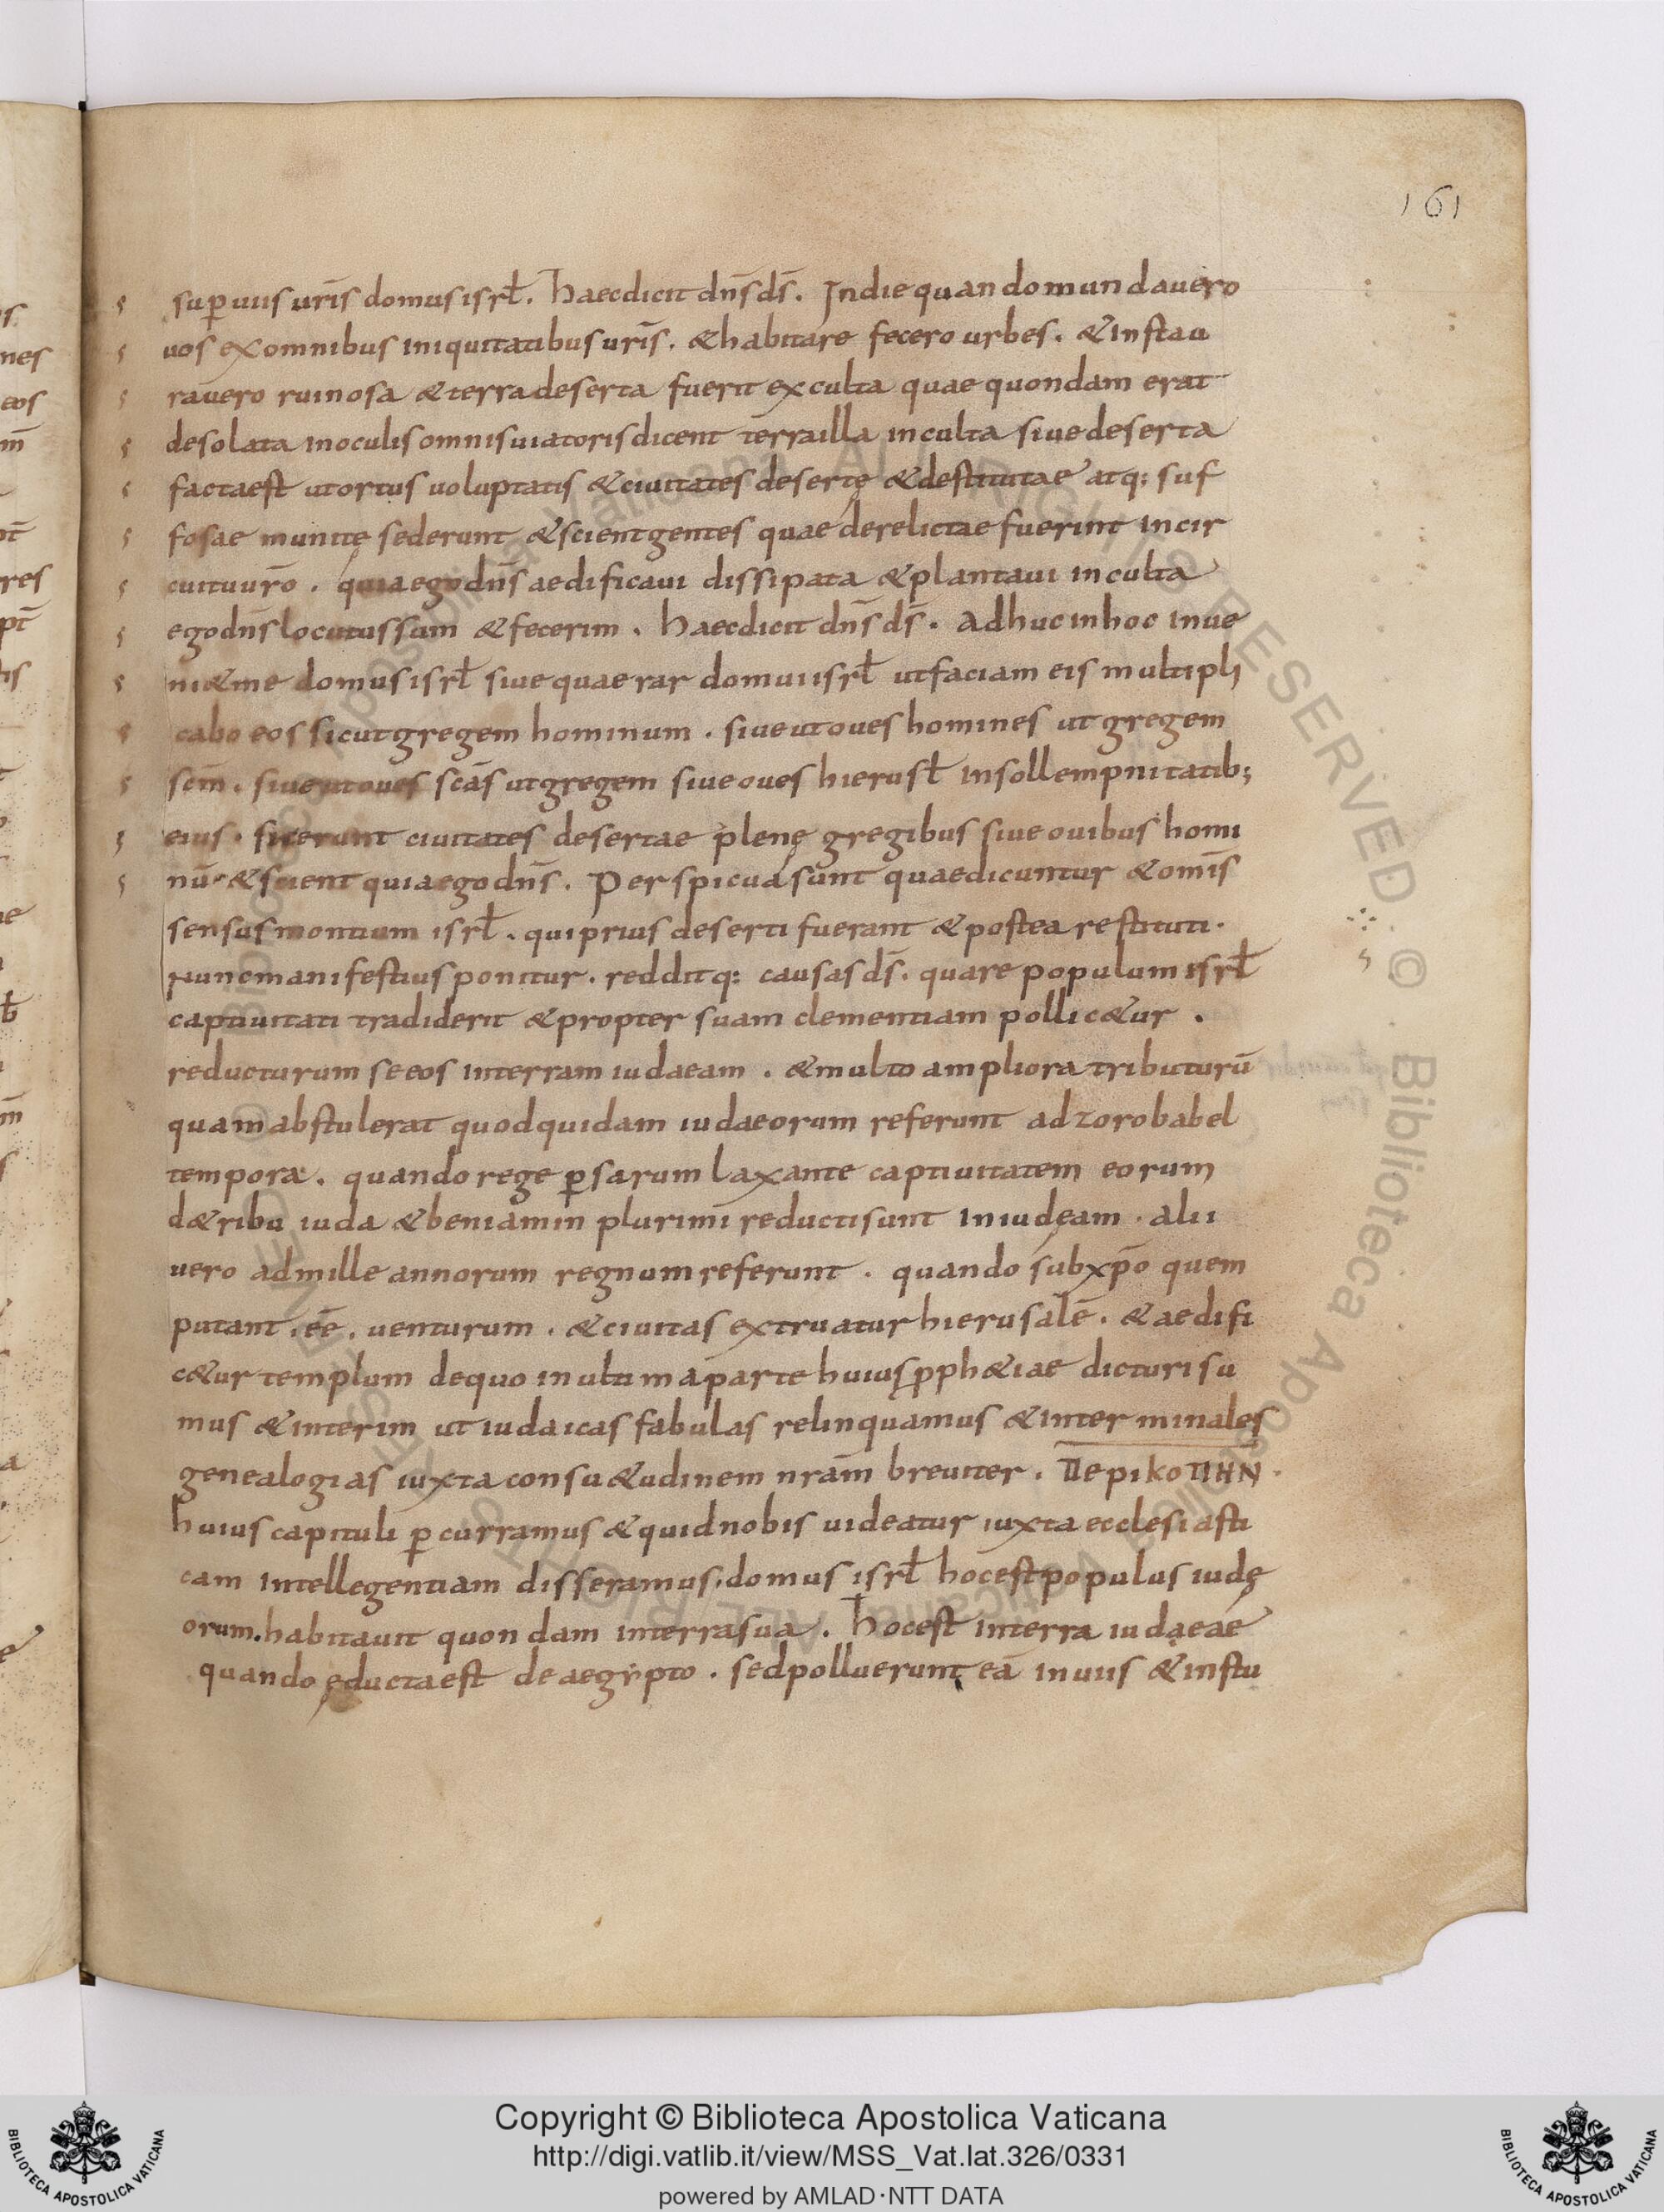 161
sup̱ uiis ur̄is domus isrł. Haec dicit dn̄s ds̄. In die quando mundauero
uos ex omnibus iniquitatibus ur̄is. & habitare fecero urbes. & instau
rauero ruinosa & terra deserta fuerit exculta quae quondam erat
desolata in oculis omnis uiatoris dicent terra illa inculta siue deserta
facta est ut ortus uoluptatis & ciuitates desertę & destitutae atq; suf
fosae munitę sederunt & scient gentes quae derelictae fuerint in cir
cuitu ur̄o. quia ego dn̄s aedificaui dissipata & plantaui inculta
ego dn̄s locutus sum & fecerim. Haec dicit dn̄s ds̄. Adhuc in hoc inue
ni&me domus isrł siue quaerar domui isrł ut faciam eis multipli
cabo eos sicut gregem hominum. siue ut oues homines ut gregem
scm̄. siue ut oues scās ut gregem siue oues hierusł in sollempnitatib;
eius. sic erunt ciuitates desertae plenę gregibus siue ouibus homi
nū & scient quia ego dn̄s. Perspicua sunt quae dicuntur & omīs
sensus montium isrł. qui prius deserti fuerant & postea restituti.
Nunc manifestius ponitur. redditq: causas ds̄. quare populum isrł
captiuitati tradiderit & propter suam clementiam pollic&ur.
reducturum se eos in terram iudaeam. & multo ampliora tributurū
quam abstulerat quod quidam iudaeorum referunt ad zorobabel
tempora. quando rege p̱sarum laxante captiuitatem eorum
d&ribu iuda & beniamin plurimi reducti sunt in iudęam. alii
uero ad mille annorum regnum referunt. quando sub xp̄o quem
putant. ēe. uenturum. & ciuitas extruatur hierusalē. & aedifi
c&ur templum de quo in ultima parte huius p̱ph&iae dicturi su
mus & interim ut iudaicas fabulas relinquamus & inter minales
genealogias iuxta consu&udinem nrām breuiter. ΠερικοΠΗΝ.
huius capituli p̱curramus & quid nobis uideatur iuxta ecclesiasti
cam intellegentiam disseramus. domus isrł hoc est populus iudę
orum. habitauit quondam in terra sua. Hoc est in terra iudaeae
quando educta est de aegypto. sed polluerunt eā in uiis & in stu
Copyright © Biblioteca Apostolica Vaticana
http://digi.vatlib.it/view/MSS_Vat.lat.326/0331
powered by AMLAD·NTT DATA